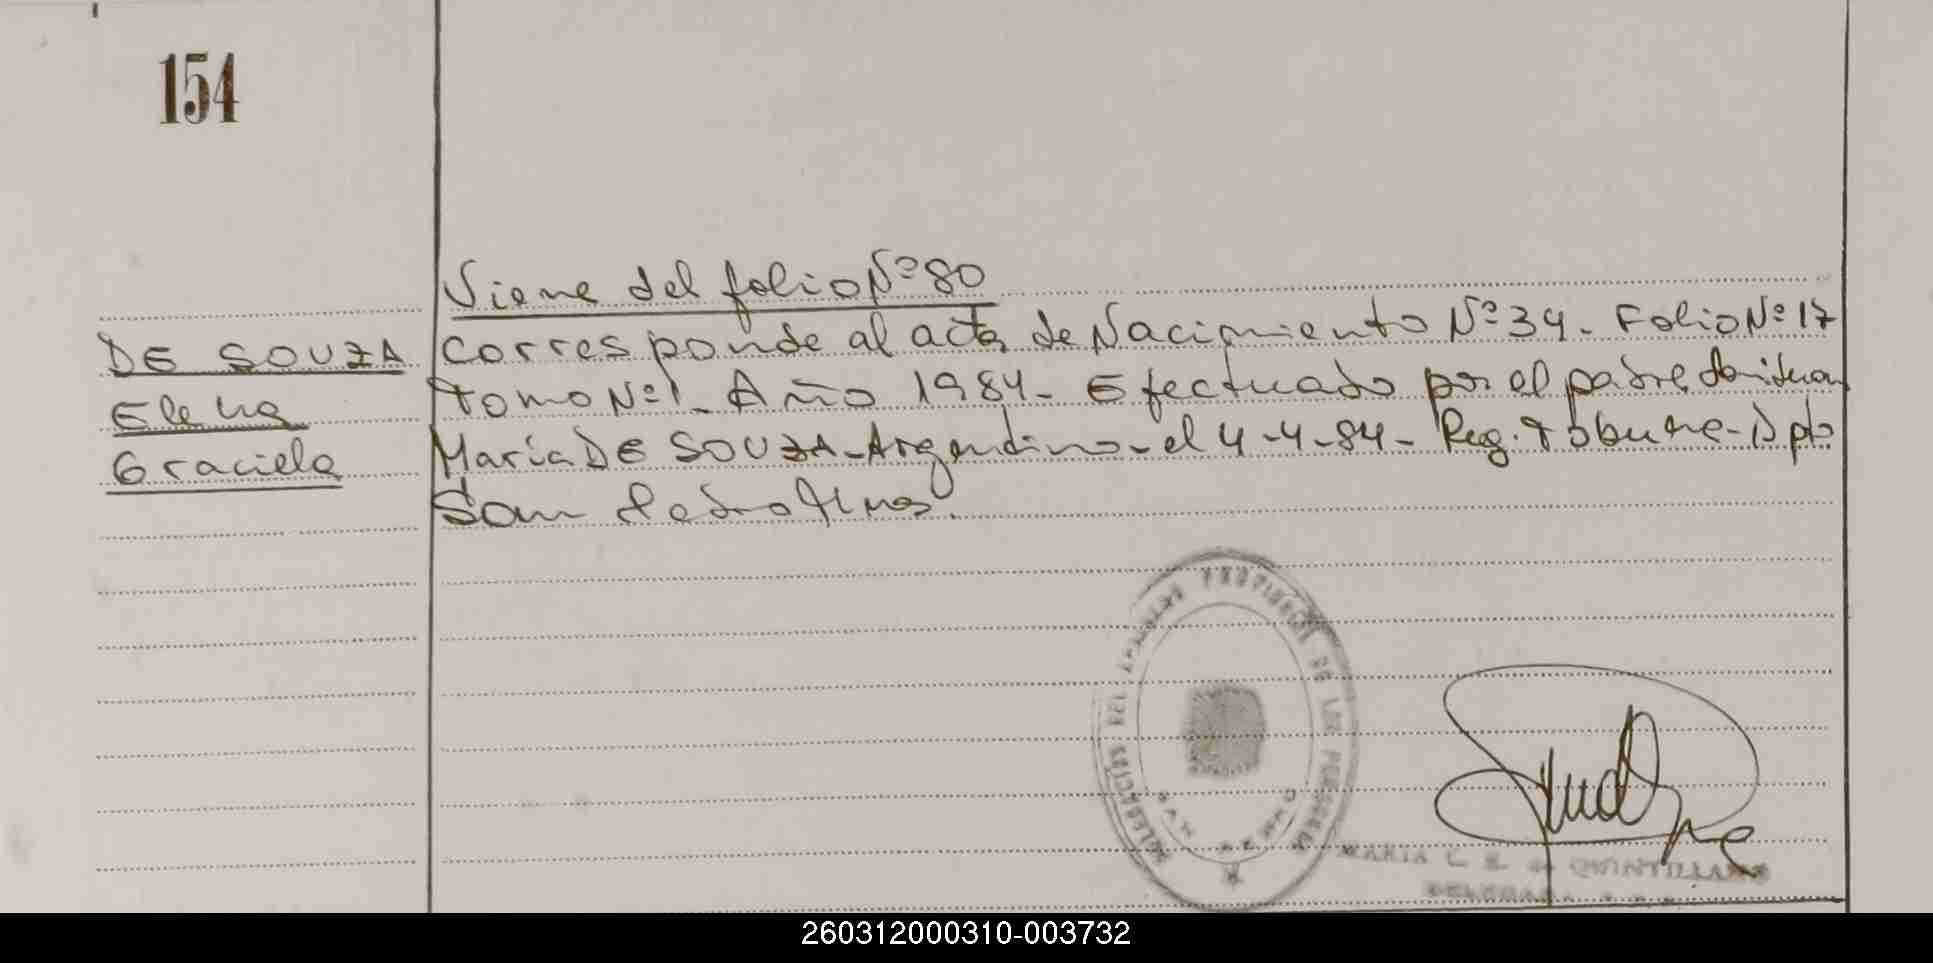 154
Viene del folio Nº 80
DE SOUZA
Elena
Graciela
Corresponde al acta de Nacimiento Nº 34. Folio Nº 17
tomo Nº 1 - Año 1984 - Efectuado por el padre
María DE SOUZA - Argentino - el 4-4-84 - Reg. Tobuna - Dpto
San Pedro Mnes.
DELEGACION DEL PROVINCIAL DE LAS PERSONAS
SAN PEDRO
MARIA C. E. de QUINTILLANO
DELEGADA
260312000310-003732